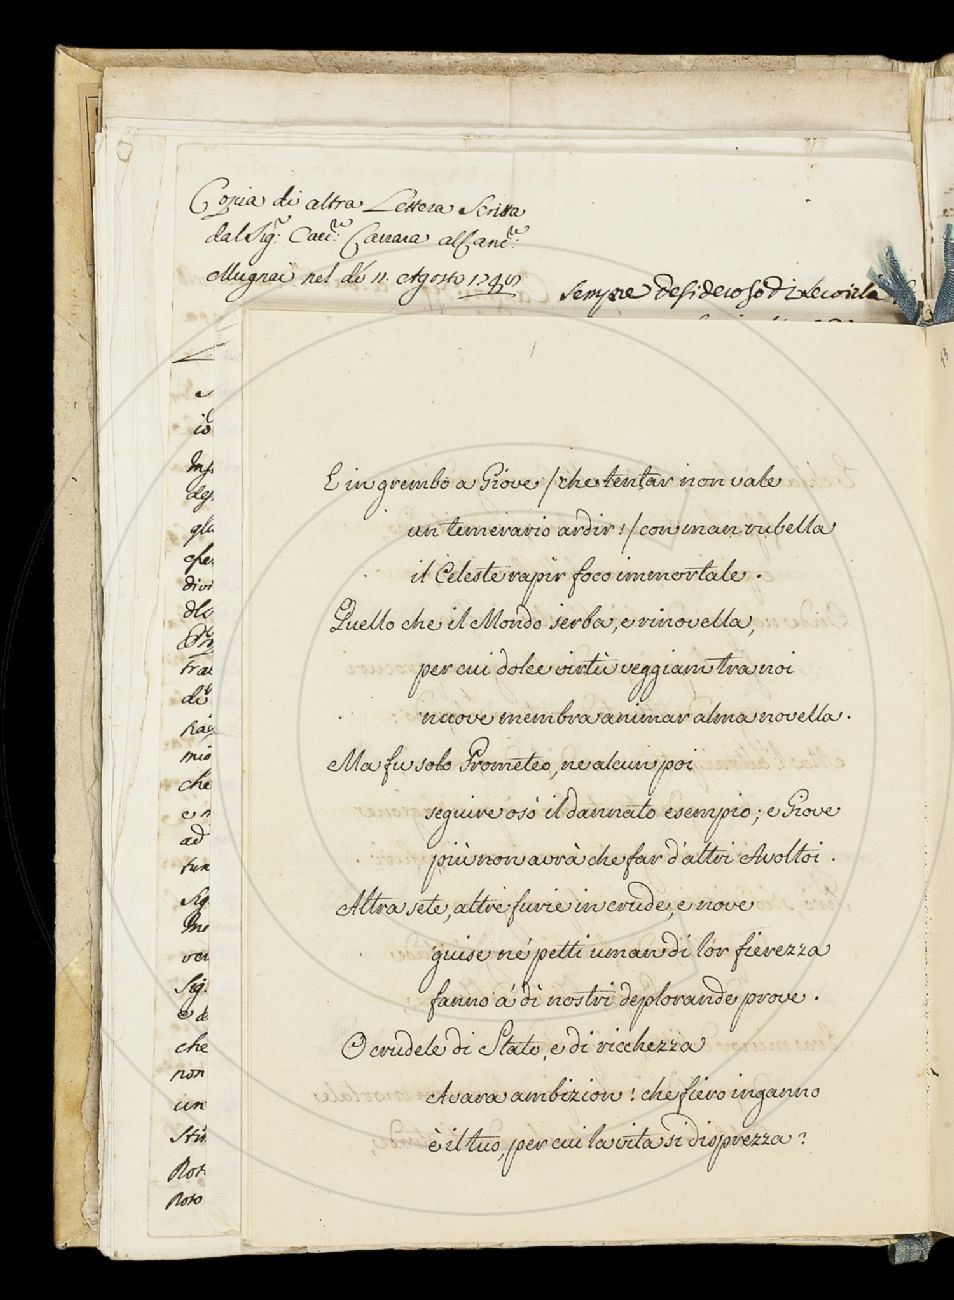 Copia di altra Lettera Scritta
dal Sig.r Carra
Mugnai nel dì 11. Agosto
Sempre desideroso di
io
che
e
ad
Sig.
che
non
un
E in grembo a Giove / che tentar non vale
un temerario ardir! / con man rubella
il Celeste rapir foco immortale.
Quello che il Mondo serba, e rinovella,
per cui dolce virtù veggiam tra noi
nuove membra animar alma novella.
Ma fu solo Prometeo, ne alcun poi
seguire osò il dannato esempio; e Giove
più non avrà che far d'altri Avoltoi.
Altra sete, altre furie in crude, e nove
guise ne' petti uman di lor fierezza
fanno a' dì nostri deplorande prove.
O crudele di Stato, e di ricchezza
Avara ambizion! che fiero inganno
è il tuo, per cui la vita si disprezza?